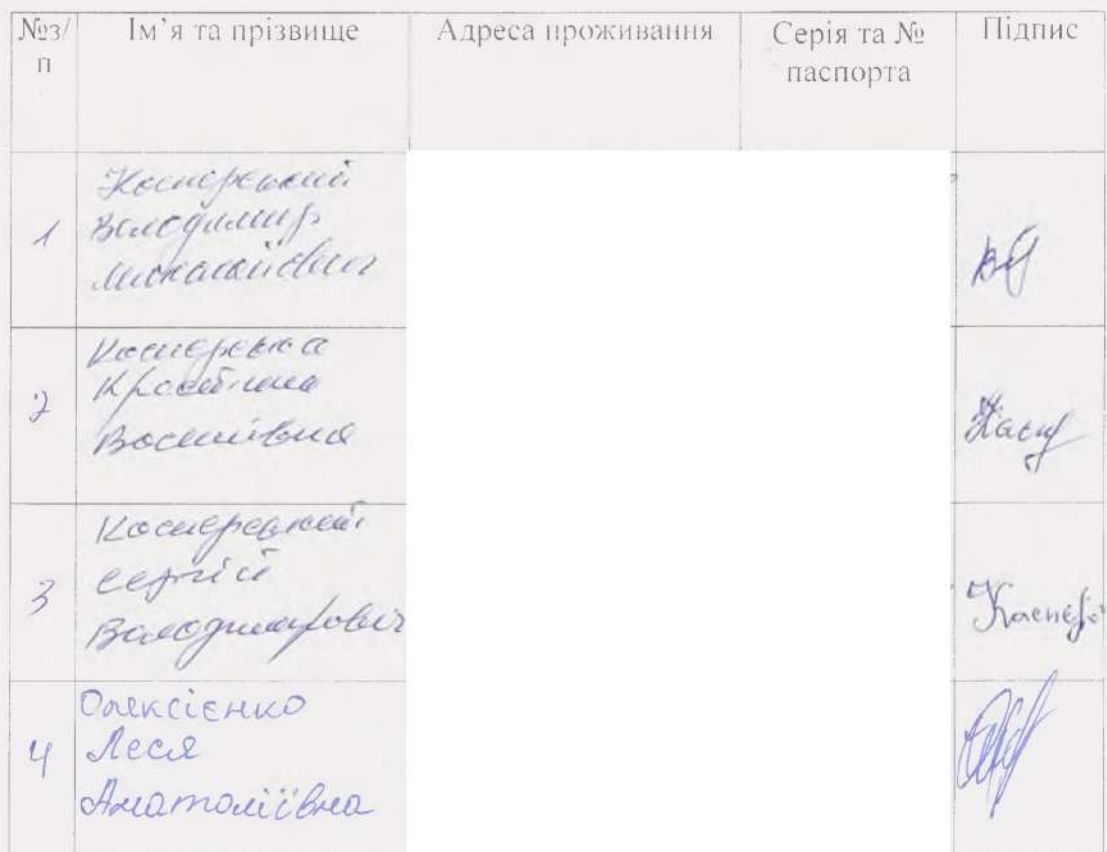 №з/ Ім’я та прізвище Адреса проживання Серія та № Підпис
п паспорта
Касперський
Володимир
1
Миколайович
Касперська
Крістіна
2
Василівна
Касперський
Сергій
3
Володимирович
Олексієнко
4 Леся
Анатоліївна